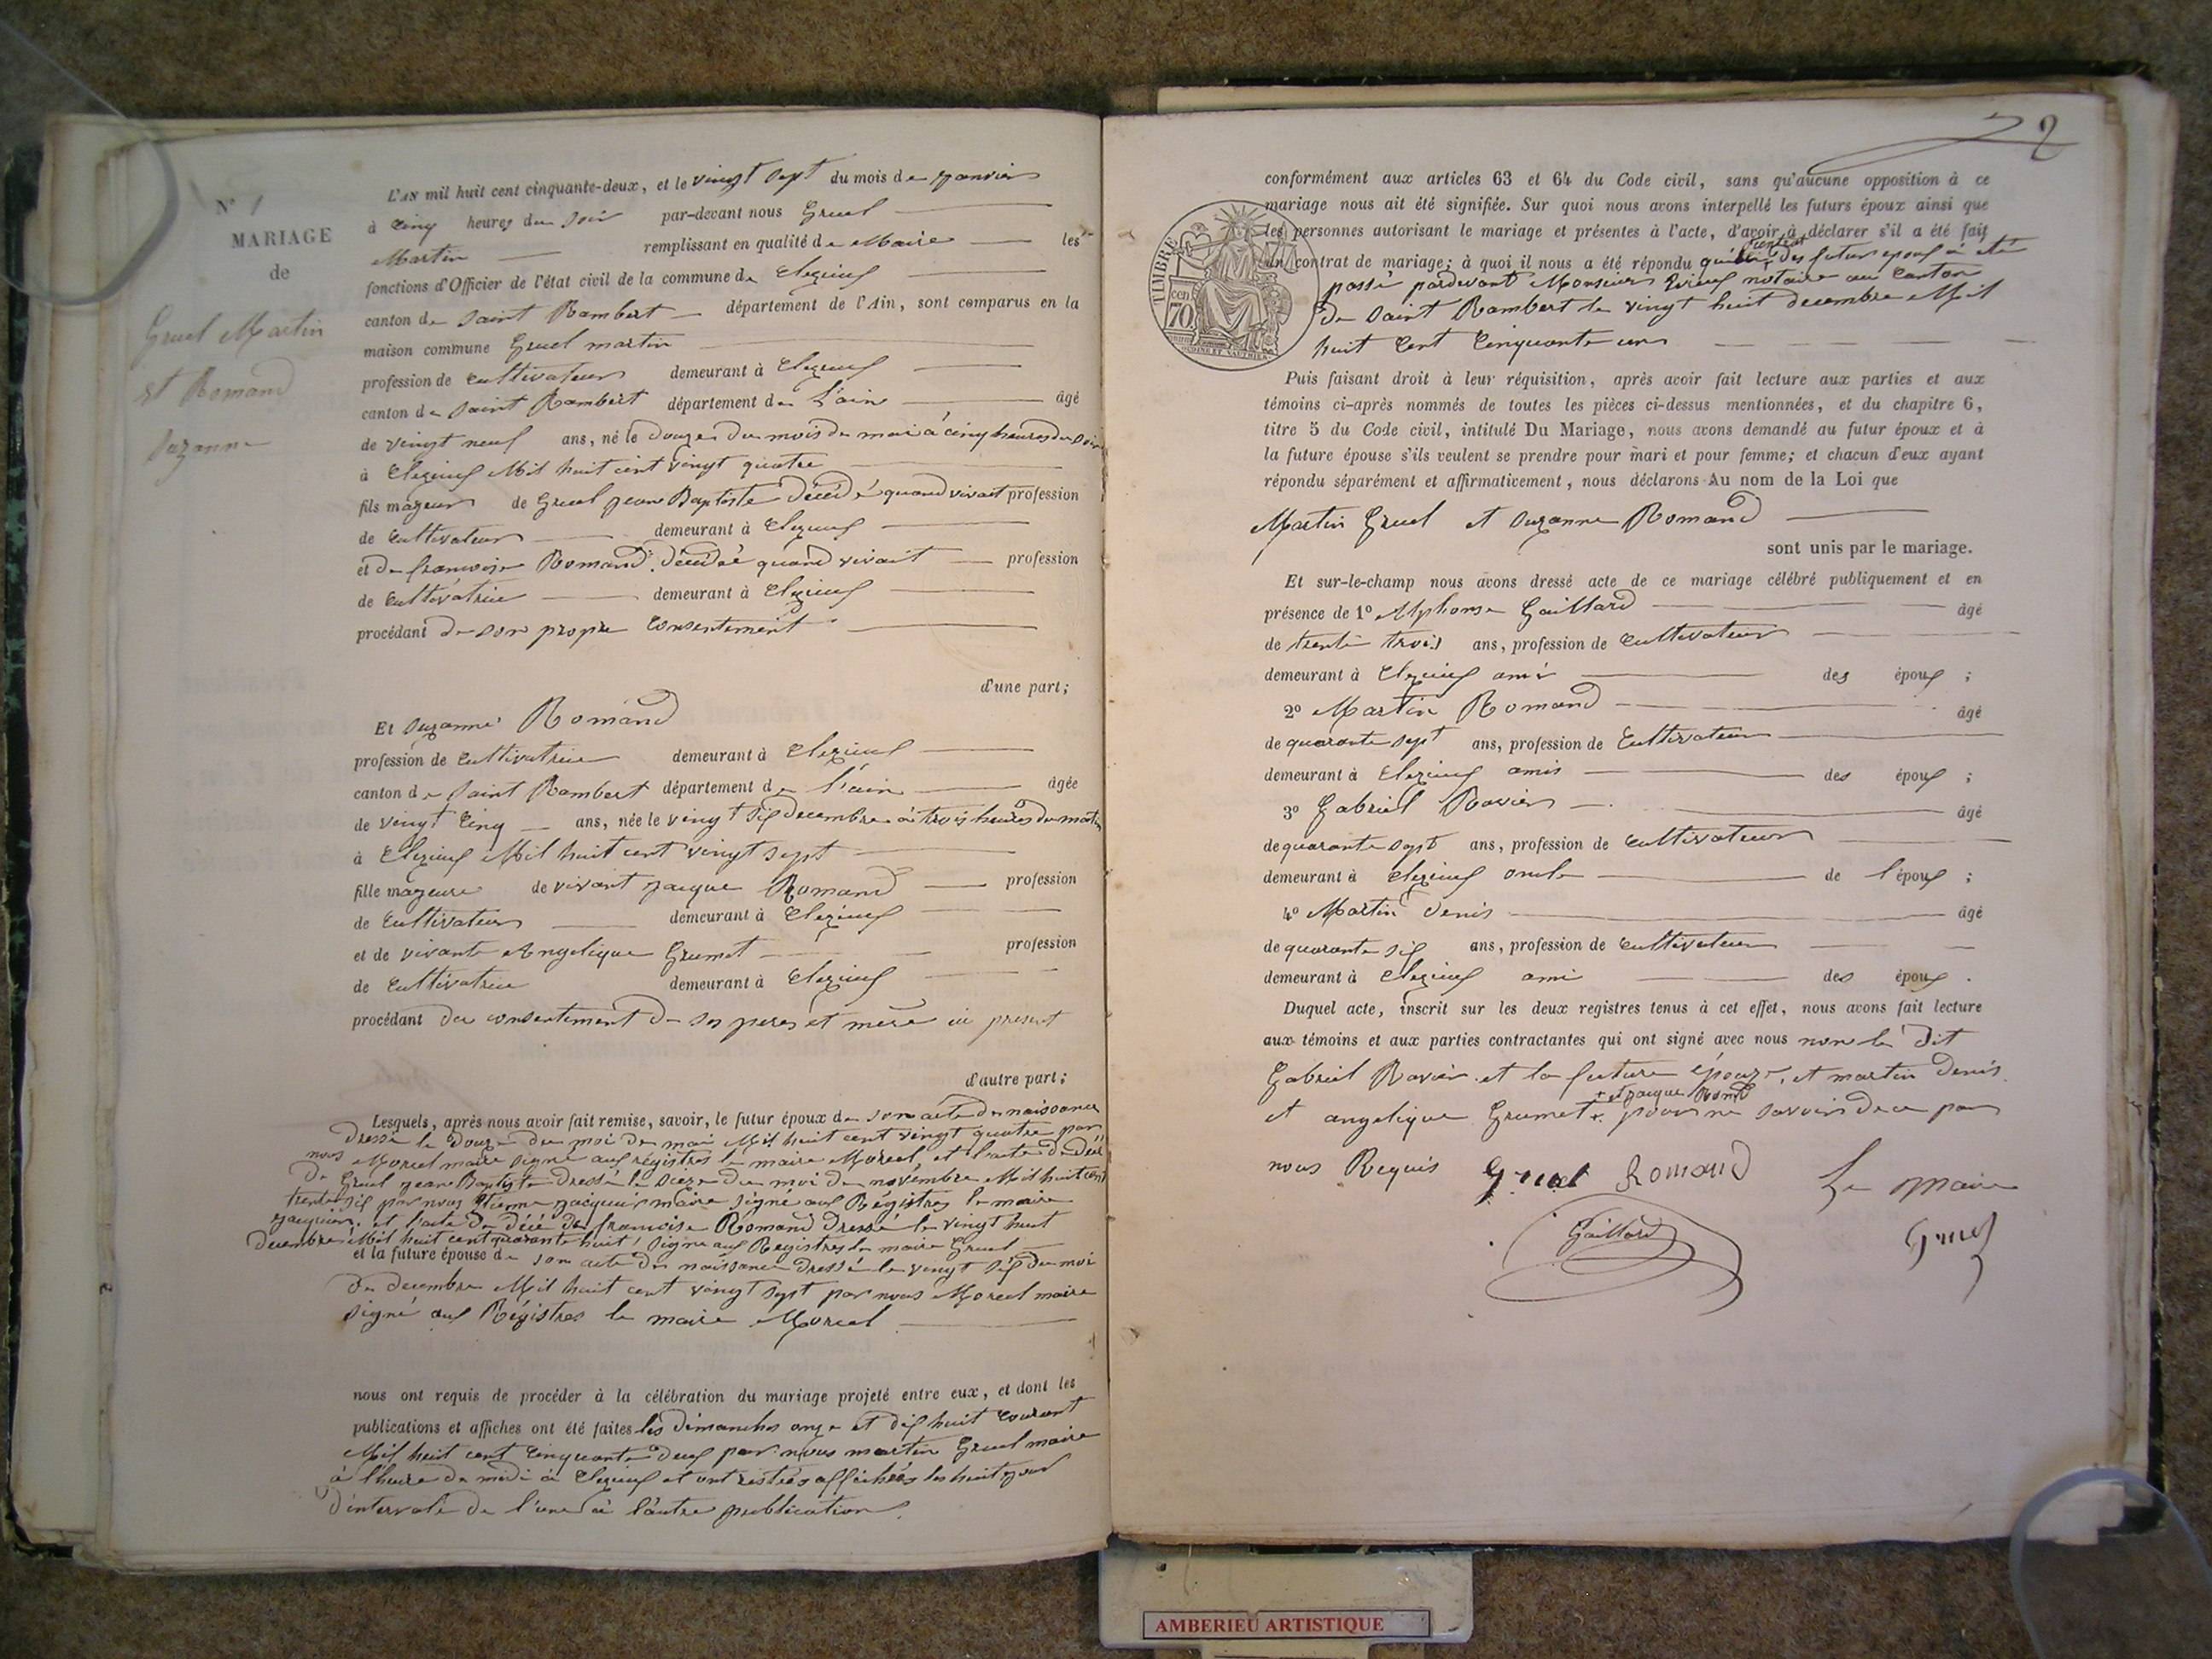 N° 1
MARIAGE
de
Gruel Martin
et Romand
Suzanne
L'AN mil huit cent cinquante-deux, et le vingt sept du mois de janvier
à cinq heures du soir par-devant nous Gruel
Martin remplissant en qualité de Maire les
fonctions d'Officier de l'état civil de la commune de Cleyzieux
canton de saint Rambert département de l'Ain, sont comparus en la
maison commune Gruel martin
profession de cultivateur demeurant à Cleyzieux
canton de saint Rambert département de L'ain âgé
de vingt neuf ans, né le douze du mois de mai à cinq heures du soir
à Cleyzieux Mil huit cent vingt quatre
fils majeur de Gruel jean Baptiste décédé quand vivait profession
de cultivateur demeurant à Cleyzieux
et de francoise Romand décédé quand vivait profession
de cultivatrice demeurant à Cleyzieux
procédant de son propre consentement
d'une part;
Et suzanne Romand
profession de cultivatrice demeurant à Cleyzieux
canton de saint Rambert département de l'ain âgée
de vingt cinq ans, née le vingt six decembre à trois heures du matin
à Cleyzieux Mil huit cent vingt sept
fille majeure de vivant jacque Romand profession
de cultivateur demeurant à Cleyzieux
et de vivante Angelique Grumet profession
de cultivatrice demeurant à Cleyzieux
procédant du consentement de ses peres et mère ici present
d'autre part;
Lesquels, après nous avoir fait remise, savoir, le futur époux de son acte de naissance
dressé le douze du moi de mai Mil huit cent vingt quatre par
nous Morcel maire signé aux régistres le maire Morcel, et l'acte de décé
de Gruel jean Baptiste dressé le du moi de novembre Mil huit cent
trente six par nous Etienne jacquier maire signé aux Régistres le maire
jacquier, et l'acte de décé de francoise Romand dressé le vingt huit
decembre Mil huit cent quarante huit signe aux Registres le maire Gruel
et la future épouse de son acte de naissance dressé le vingt six du moi
de decembre Mil huit cent vingt sept par nous Morcel maire
signé aux Régistres le maire Morcel
nous ont requis de procéder à la célébration du mariage projeté entre eux, et dont les
publications et affiches ont été faites les dimanches onze et dix huit courant
Mil huit cent cinquante deux par nous martin Gruel maire
à l'heure de midi à Cleyzieux et ont restées affichées les huit jour
d'intervale de l'une à l'autre publication.
2
conformément aux articles 63 et 64 du Code civil, sans qu'aucune opposition à ce
mariage nous ait été signifiée. Sur quoi nous avons interpellé les futurs époux ainsi que
les personnes autorisant le mariage et présentes à l'acte, d'avoir à déclarer s'il a été fait
un contrat de mariage; à quoi il nous a été répondu contrat des futur epoux à été
TIMBRE
cen
70
passé pardevant Monsieur notaire au canton
de saint Rambert le vingt huit decembre Mil
huit cent cinquante un
Puis faisant droit à leur réquisition, après avoir fait lecture aux parties et aux
témoins ci-après nommés de toutes les pièces ci-dessus mentionnées, et du chapitre 6,
titre 5 du Code civil, intitulé Du Mariage, nous avons demandé au futur époux et à
la future épouse s'ils veulent se prendre pour mari et pour femme; et chacun d'eux ayant
répondu séparément et affirmativement, nous déclarons Au nom de la Loi que
Martin Gruel et suzanne Romand
sont unis par le mariage.
Et sur-le-champ nous avons dressé acte de ce mariage célébré publiquement et en
présence de 1° Alphonse Gaillard âgé
de trente trois ans, profession de cultivateur
demeurant à Cleyzieux ami des époux ;
2° Martin Romand âgé
de quarante sept ans, profession de cultivateur
demeurant à Cleyzieux amis des époux ;
3° Gabriel Ravier âgé
de quarante sept ans, profession de cultivateur
demeurant à Cleyzieux oncle de l'époux ;
4° Martin denis âgé
de quarante six ans, profession de cultivateur
demeurant à Cleyzieux ami des époux .
Duquel acte, inscrit sur les deux registres tenus à cet effet, nous avons fait lecture
aux témoins et aux parties contractantes qui ont signé avec nous non le dit
Gabriel Ravier et la future épouze, et martin denis
et angelique Grumet + et jacque Romd pour ne savoir de ce par
nous Requis Gruel Romand Le Maire
Gaillard Gruel
AMBERIEU ARTISTIQUE